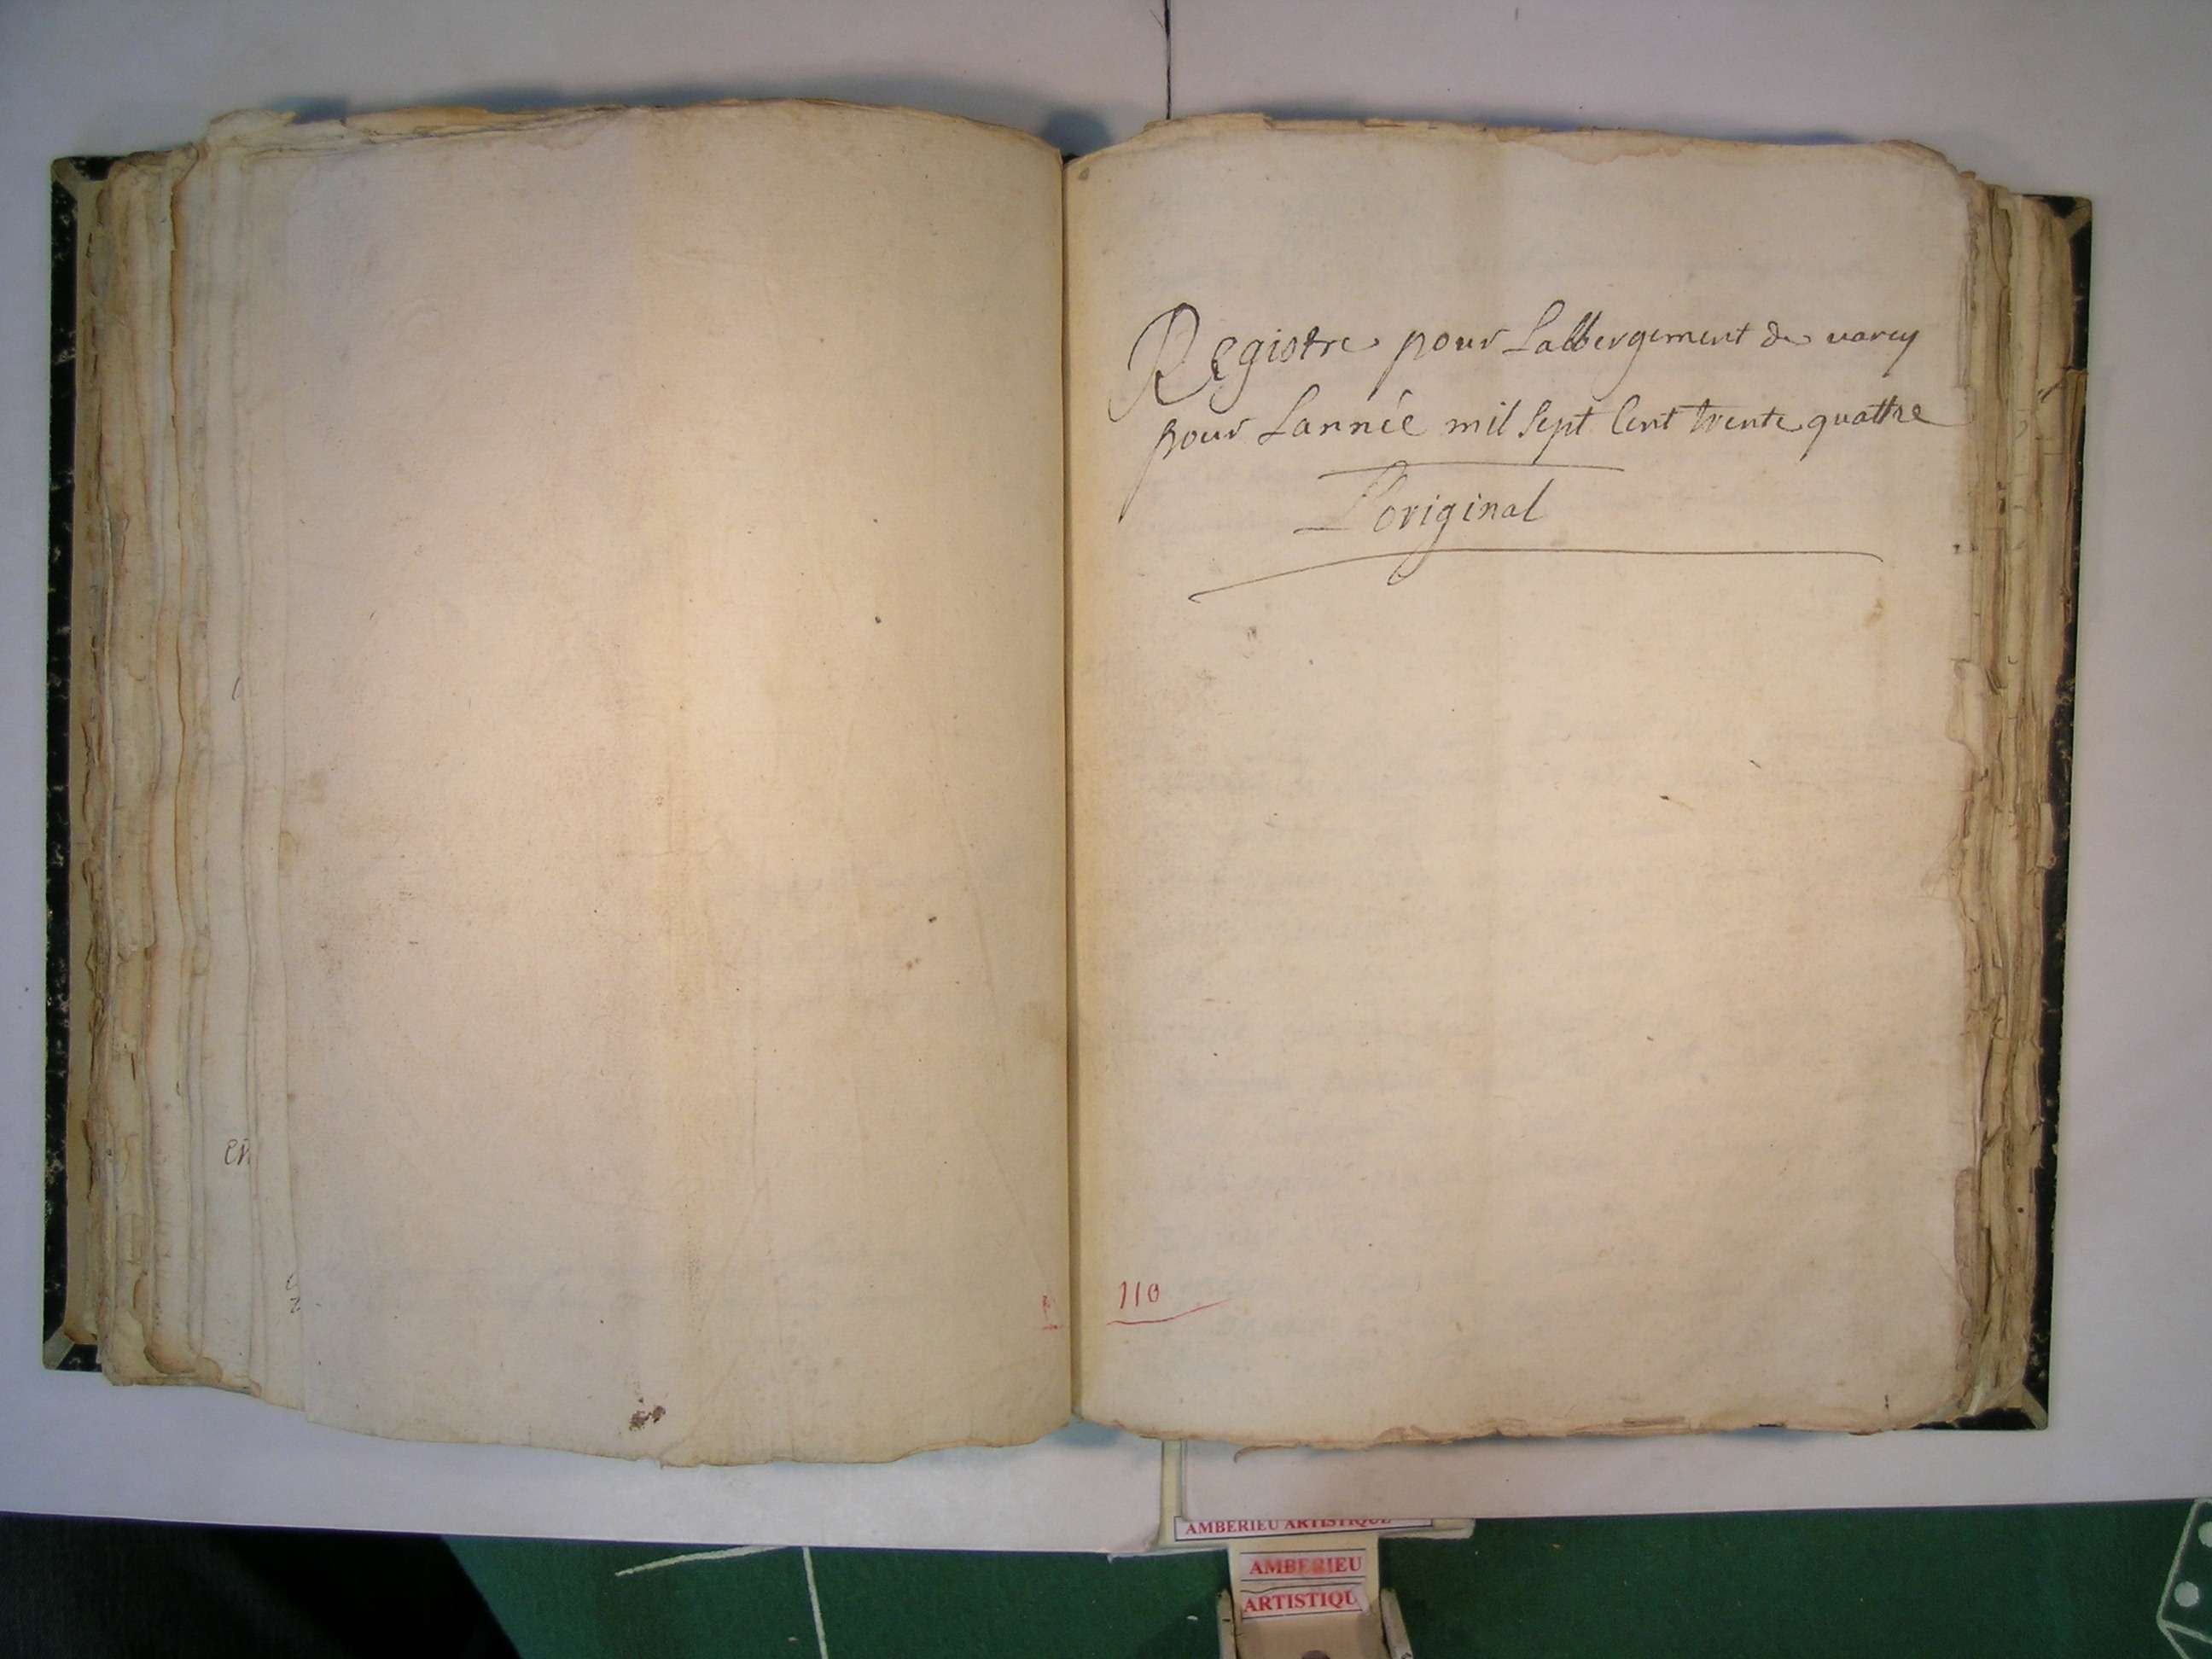 Registre pour Labbergement de varey
pour Lannée mil Sept Cent trente quattre
L'original
110
en
AMBERIEU ARTISTIQUE
AMBERIEU
ARTISTIQU